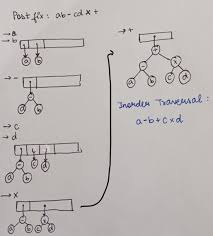 Postfix: ab-cdx+
→ a
→ b
a b
→ -
-
a b
→ c
→ d
- c d
a b
→ x
- x
a b c d
→ +
+
- x
a b c d
Inorder Traversal:
a-b+cxd